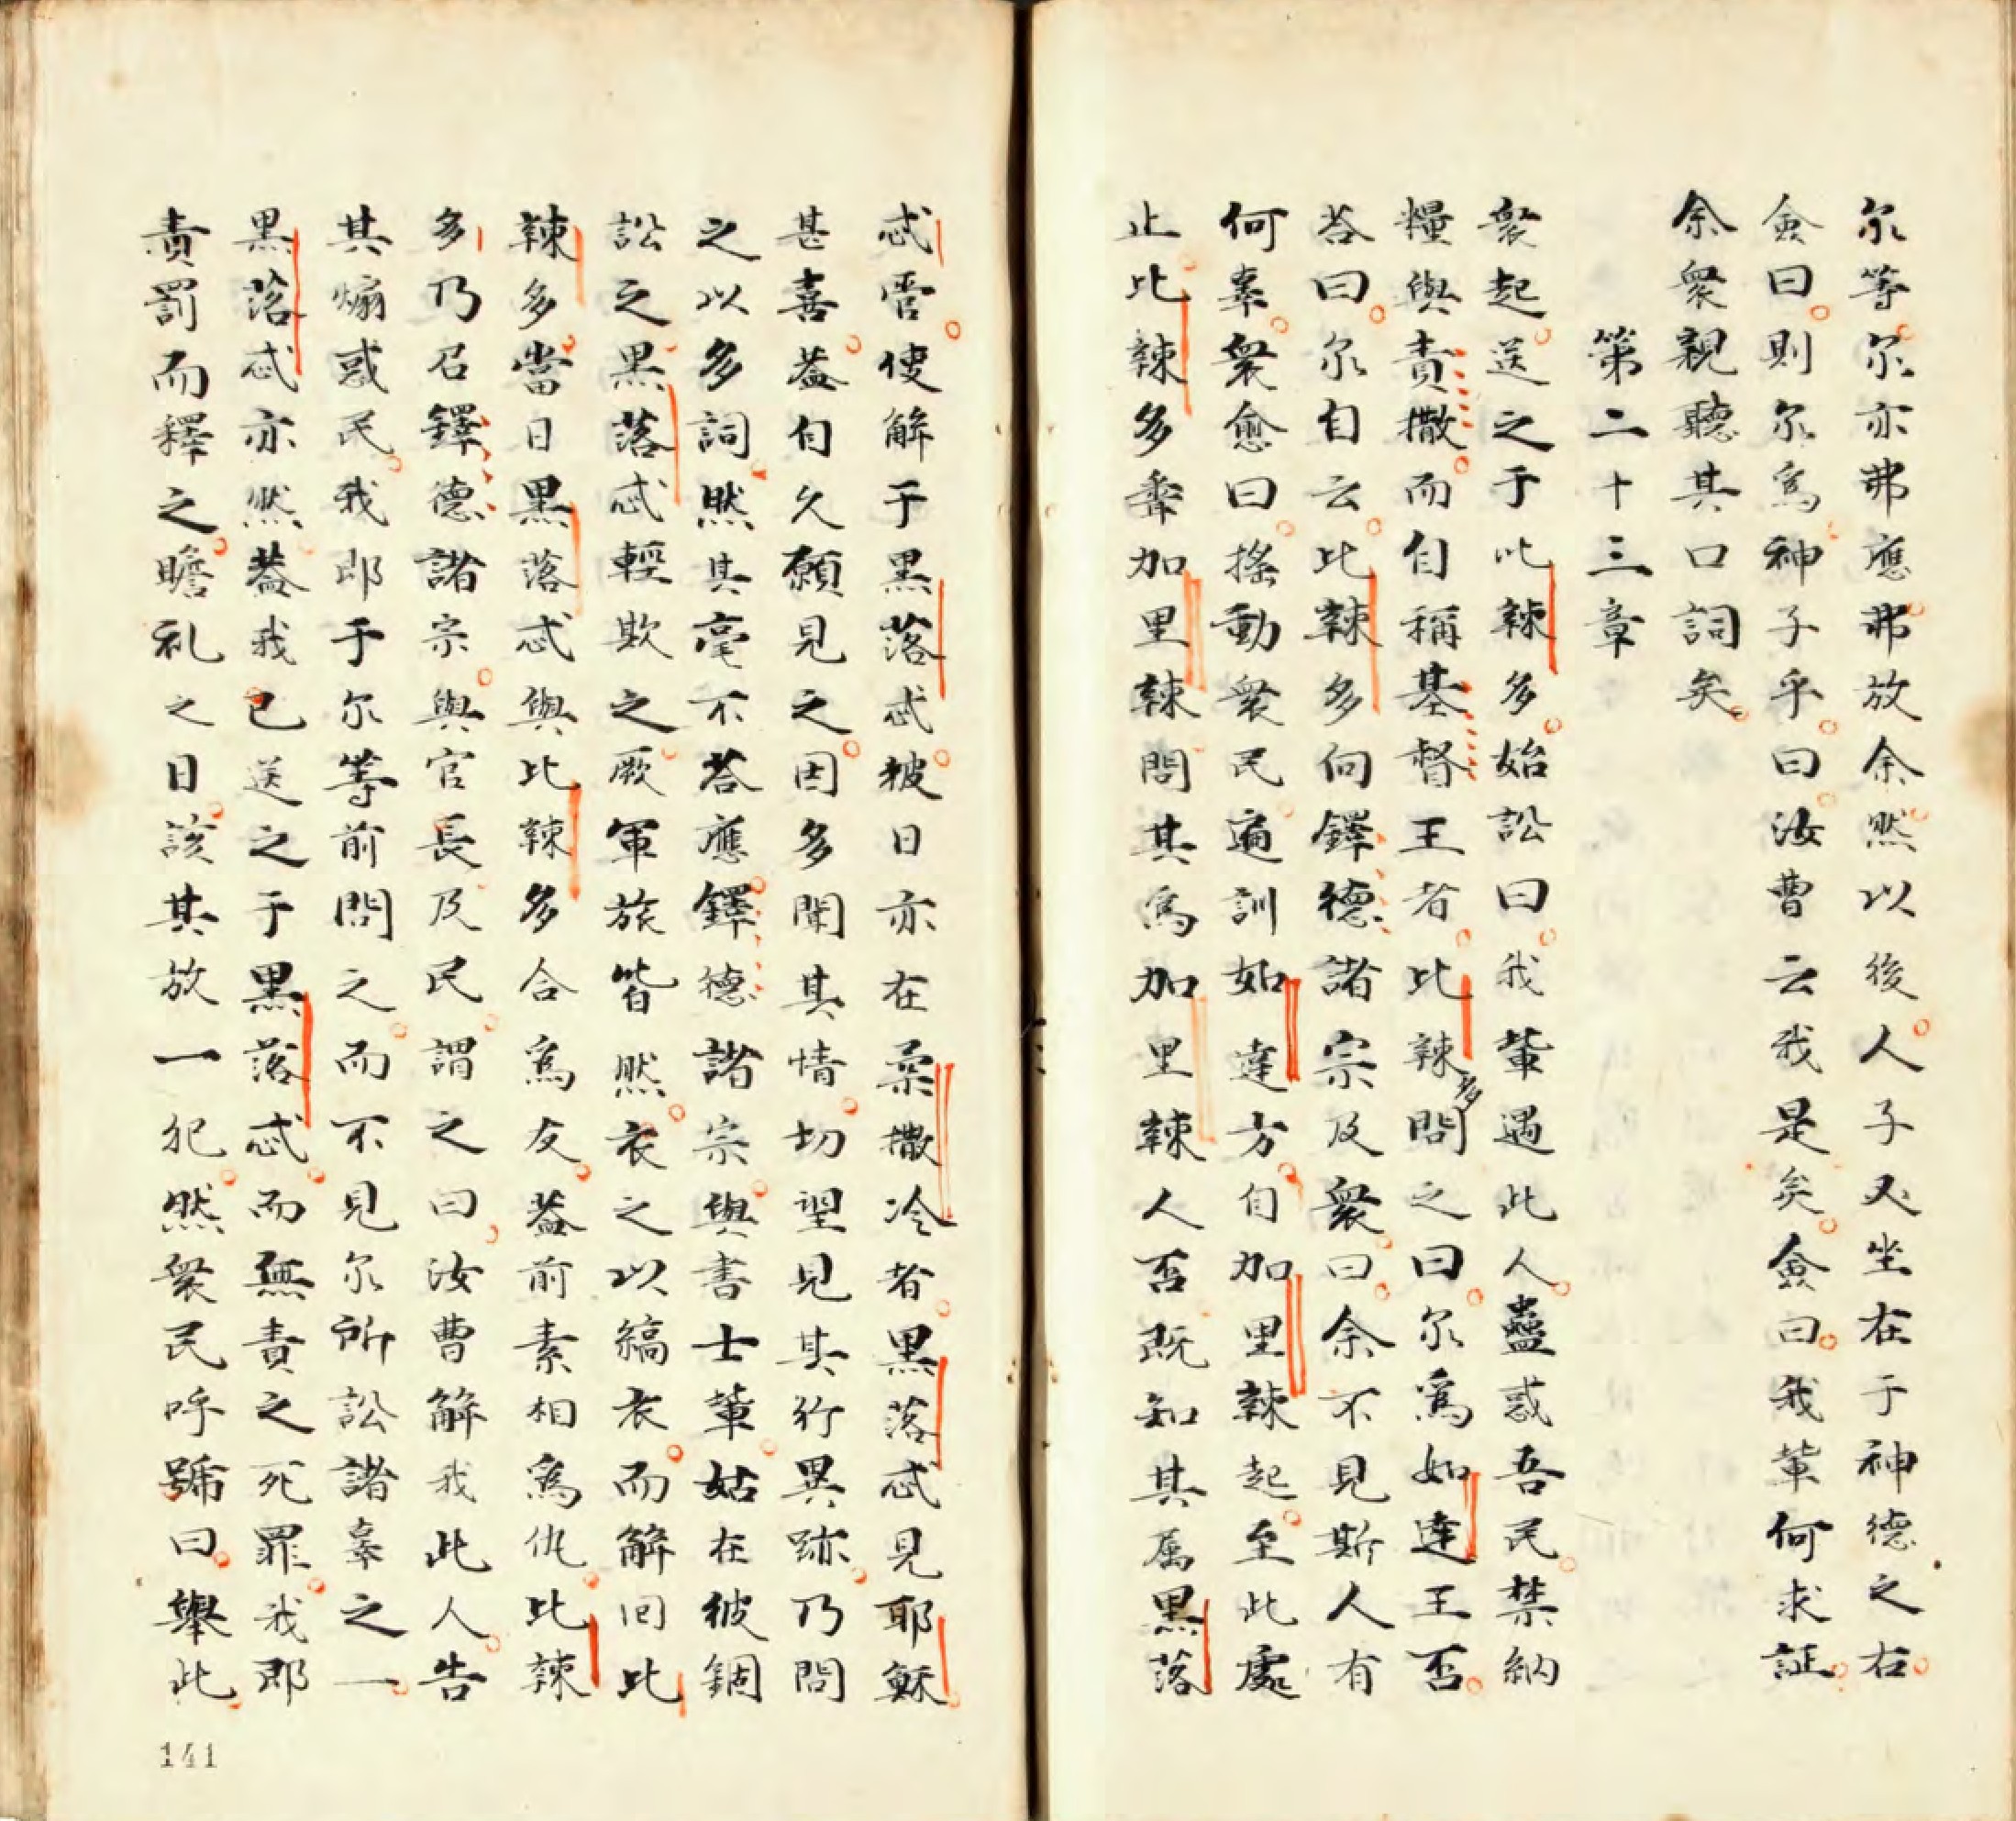 尔等尔亦弗應弗放余然以後人子又坐在于神德之右
僉曰則尔為神子乎曰汝曹云我是矣僉曰我輩何求証
余衆親聽其口詞矣
第二十三章
衆起送之于比辣多始訟曰我輩遇此人蠱惑吾民禁納
糧與責撒而自稱基督王者比辣多問之曰尔為如達王否
答曰尔自云比辣多向鐸德諸宗及衆曰余不見斯人有
何辜衆愈曰搖動衆民遍訓如達方自加里辣起至此處
止比辣多聽加里辣問其為加里辣人否既知其屬黑落
忒管使解于黑落忒彼日亦在柔撒冷者黑落忒見耶穌
甚喜蓋自久願見之因多聞其情切望見其行異跡乃問
之以多詞然其毫不答應鐸德諸宗與書士輩姑在彼錮
訟之黑落忒輕欺之厥軍旅皆然衣之以縞衣而解回比
辣多當日黑落忒與比辣多合為友蓋前素相為仇比辣
多乃召鐸德諸宗與官長及民謂之曰汝曹解我此人告
其煽惑民我郎于尔等前問之而不見尔所訟諸辜之一
黑落忒亦然蓋我已送之于黑落忒而無責之死罪我郎
責罰而釋之瞻礼之日該其放一犯然衆民呼號曰舉此
141